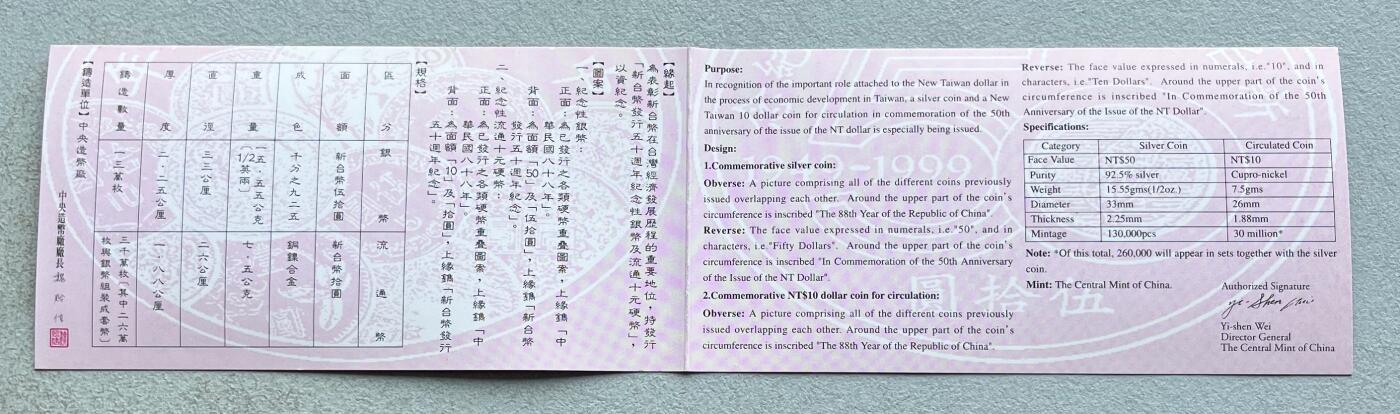 【緣起】
為表彰新台幣在台灣經濟發展歷程的重要地位,特發行
「新台幣發行五十週年紀念性銀幣及流通十元硬幣」,
以資紀念。
【圖案】
一、紀念性銀幣:
正面:為已發行之各類硬幣重疊圖案,上緣鐫「中
華民國八十八年」。
背面:為面額「50」及「伍拾圓」,上緣鐫「新台幣
發行五十週年紀念」。
二、紀念性流通十元硬幣:
正面:為已發行之各類硬幣重疊圖案,上緣鐫「中
華民國八十八年」。
背面:為面額「10」及「拾圓」,上緣鐫「新台幣發行
五十週年紀念」。
【規格】
區分 銀幣 流通幣
面額 新台幣伍拾圓 新台幣拾圓
成色 千分之九二五 銅鎳合金
重量 一五.五五公克(1/2英兩) 七.五公克
直徑 三三公厘 二六公厘
厚度 二.二五公厘 一.八八公厘
鑄造數量 一三萬枚 三千萬枚(其中二六萬
枚與銀幣組裝成套幣)
【鑄造單位】中央造幣廠
中央造幣廠廠長 魏
Purpose:
In recognition of the important role attached to the New Taiwan dollar in
the process of economic development in Taiwan, a silver coin and a New
Taiwan 10 dollar coin for circulation in commemoration of the 50th
anniversary of the issue of the NT dollar is especially being issued.
Design:
1.Commemorative silver coin:
Obverse: A picture comprising all of the different coins previously
issued overlapping each other. Around the upper part of the coin's
circumference is inscribed "The 88th Year of the Republic of China".
Reverse: The face value expressed in numerals, i.e."50", and in
characters, i.e."Fifty Dollars". Around the upper part of the coin's
circumference is inscribed "In Commemoration of the 50th Anniversary
of the Issue of the NT Dollar".
2.Commemorative NT$10 dollar coin for circulation:
Obverse: A picture comprising all of the different coins previously
issued overlapping each other. Around the upper part of the coin's
circumference is inscribed "The 88th Year of the Republic of China".
Reverse: The face value expressed in numerals, i.e."10", and in
characters, i.e."Ten Dollars". Around the upper part of the coin's
circumference is inscribed "In Commemoration of the 50th
Anniversary of the Issue of the NT Dollar".
Specifications:
Category Silver Coin Circulated Coin
Face Value NT$50 NT$10
Purity 92.5% silver Cupro-nickel
Weight 15.55gms(1/2oz.) 7.5gms
Diameter 33mm 26mm
Thickness 2.25mm 1.88mm
Mintage 130,000pcs 30 million*
Note: *Of this total, 260,000 will appear in sets together with the silver
coin.
Mint: The Central Mint of China.
Authorized Signature
Yi-shen Wei
Director General
The Central Mint of China
1999
圓拾伍